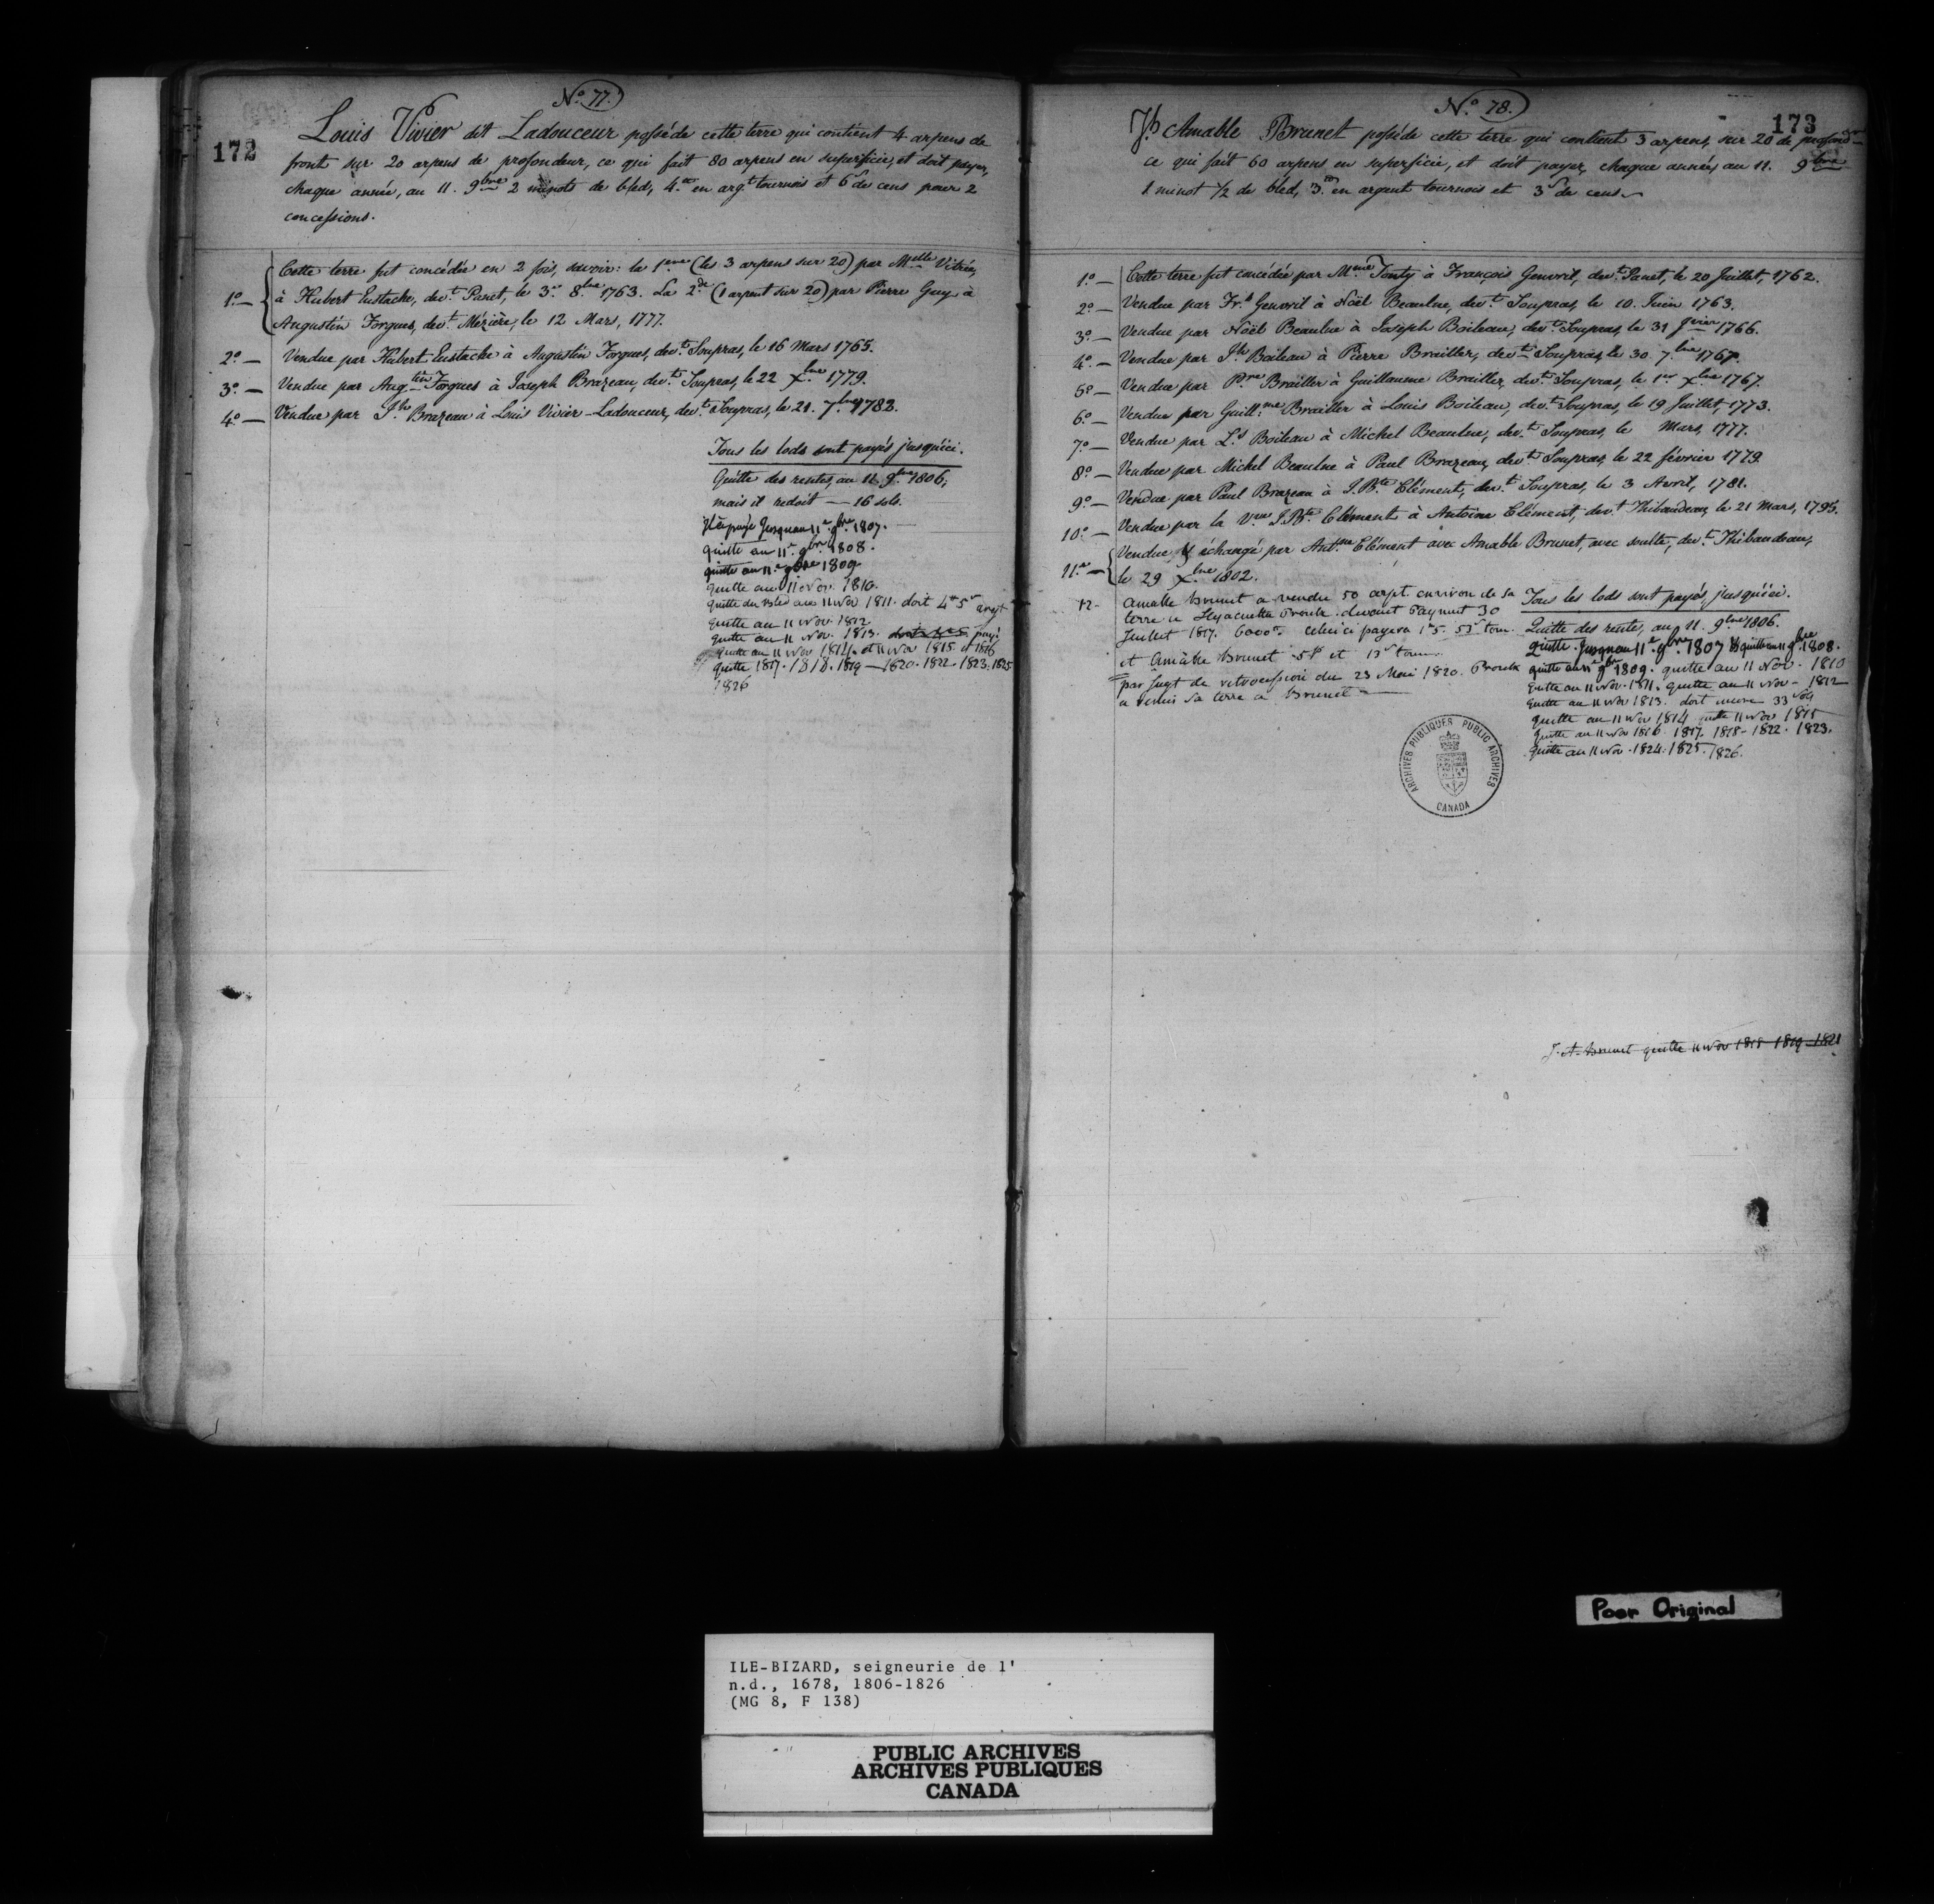 172
No. 77.
Louis Vivier dit Ladouceur posséde cette terre qui contient 4 arpens de
front sur 20 arpens de profondeur, ce qui fait 80 arpens en superficie, et doit payer,
chaque année, au 11. 9bre 2 minots de bled, 4.tt en argt tournois et 6s de cens pour 2
concessions.
1o — Cette terre fut concédée en 2 fois, savoir: la 1ere (les 3 arpens sur 20) par Melle Vitrée,
à Hubert Eustache, devt Panet, le 3.e 8bre 1763. La 2de (1 arpent sur 20) par Pierre Guy à
Augustin Forgues, devt Mézière, le 12 Mars, 1777.
2o — Vendue par Hubert Eustache à Augustin Forgues, devt Soupras, le 16 Mars 1765.
3o — Vendue par Augtin Forgues à Joseph Brazeau, devt Soupras, le 22 Xbre 1779.
4o — Vendue par Jh Brazeau à Louis Vivier-Ladouceur, devt Soupras, le 21. 7bre 1782.
Tous les lods sont payés jusqu'ici.
Quitte des rentes, au 11 9bre 1806;
mais il redoit — 16 sols.
Il a payé Jusquau 11e 9bre 1807.
quitte au 11e 9bre 1808.
quitte au 11e 9bre 1809
quitte au 11 Nov. 1810.
quitte du bled au 11 Nov 1811. doit 4tt 5s argt
quitte au 11 Nov. 1812
quitte au 11 Nov. 1813. doit 4tt 5 payé
quitte au 11 Nov 1814. et 11 Nov 1815 et 1816
quitte 1817. 1818. 1819 — 1820. 1822. 1823. 1825
1826
173
No. 78.
Jh Amable Brunet posséde cette terre qui contient 3 arpens, sur 20 de profondeur
ce qui fait 60 arpens en superficie, et doit payer, chaque année, au 11. 9bre
1 minot 1/2 de bled, 3.tt en argent tournois et 3s de cens.
1o — Cette terre fut concédée par Mme Tonty à François Genvril, devt Panet, le 20 Juillet, 1762.
2o — Vendue par Frs Genvril à Noël Beaulne, devt Soupras, le 10. Juin 1763.
3o — Vendue par Noël Beaulne à Joseph Boileau, devt Soupras, le 31 Jvier 1766.
4o — Vendue par Jh Boileau à Pierre Brailler, devt Soupras, le 30. 7bre 1767.
5o — Vendue par Pre Brailler à Guillaume Brailler, devt Soupras, le 1er Xbre 1767.
6o — Vendue par Guillme Brailler à Louis Boileau, devt Soupras, le 19 Juillet, 1773.
7o — Vendue par Ls Boileau à Michel Beaulne, devt Soupras, le Mars, 1777.
8o — Vendue par Michel Beaulne à Paul Brazeau, devt Soupras, le 22 février 1779.
9o — Vendue par Paul Brazeau à J.Bte Clément, devt Soupras, le 3 Avril, 1781.
10o — Vendue par la Vve J.Bte Clément à Antoine Clément, devt Thibaudeau, le 21 Mars, 1795.
11o — Vendue & échangé par Antne Clément avec Amable Brunet, avec soulte, devt Thibaudeau,
le 29 Xbre 1802.
12- Amable Brunet a vendu 50 arpt. environ de sa
terre a Hyacinthe Proulx devant Payment 30
Juillet 1817. 6000tt. celui ci payera
et Amable Brunet
par Jugt de retrocession du 23 Mai 1820. Proulx
a remis sa terre a Brunet
Tous les lods sont payés, jusqu'ici.
Quitte des rente, au 11. 9bre 1806.
quitte Jusquau 11e 9bre 1807 & quitte au 11 9bre 1808.
quitte au 11e 9bre 1809. quitte au 11 Nov. 1810
quitte au 11 Nov. 1811. quitte au 11 Nov - 1812
quitte au 11 Nov 1813. doit encore 33 sols
quitte au 11 Nov 1814 quitte 11 Nov 1815
quitte au 11 Nov 1816. 1817. 1818 - 1822. 1823.
quitte au 11 Nov. 1824. 1825. 1826.
ARCHIVES PUBLIQUES PUBLIC ARCHIVES
CANADA
J. A. Brunet quitte 11 Nov 1818 1819 1821
Poor Original
ILE-BIZARD, seigneurie de l'
n.d., 1678, 1806-1826
(MG 8, F 138)
PUBLIC ARCHIVES
ARCHIVES PUBLIQUES
CANADA